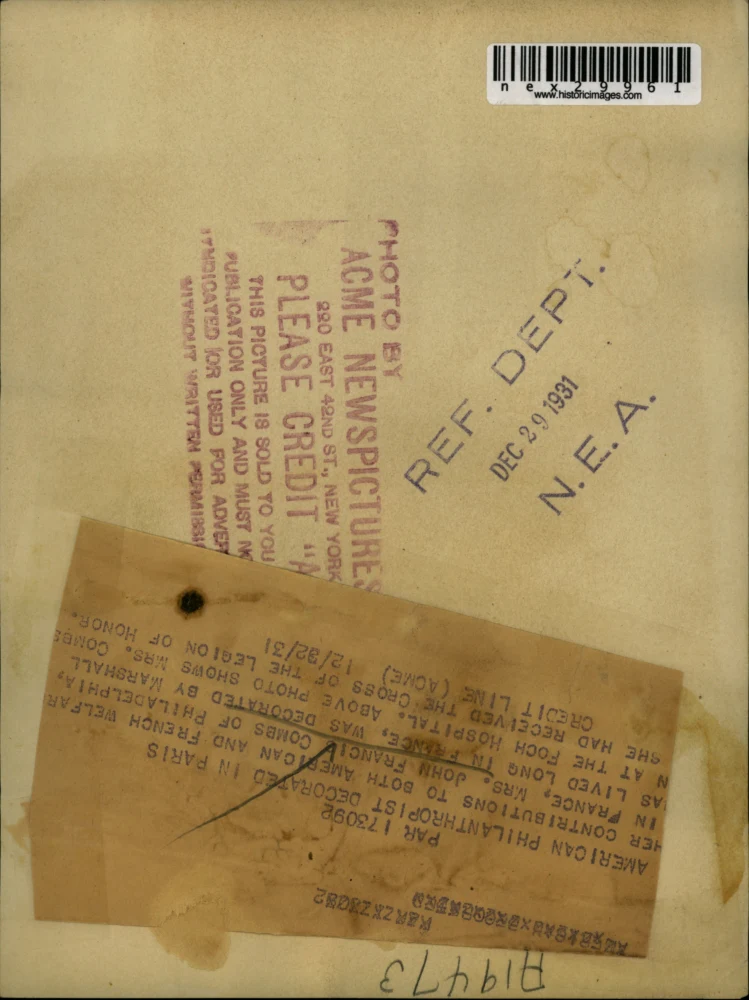 nex29961
www.historicimages.com
PHOTO BY
ACME NEWSPICTURES
220 EAST 42ND ST., NEW YORK
PLEASE CREDIT "A
THIS PICTURE IS SOLD TO YOU
PUBLICATION ONLY AND MUST N
OR USED FOR ADVER
WITHOUT WRITTEN PERMISSI
REF. DEPT.
DEC 29 1931
N. E. A.
A19473
PAR 173092
AMERICAN PHILANTHROPIST DECORATED IN PARIS
HER CONTRIBUTIONS TO BOTH AMERICAN AND FRENCH WELFAR
IN FRANCE, MRS. JOHN FRANCIS COMBS OF PHILADELPHIA,
AS LIVED LONG IN FRANCE, WAS DECORATED BY MARSHALL
N AT THE FOCH HOSPITAL. ABOVE PHOTO SHOWS MRS. COMBS
SHE HAD RECEIVED THE CROSS OF THE LEGION OF HONOR.
CREDIT LINE (ACME)